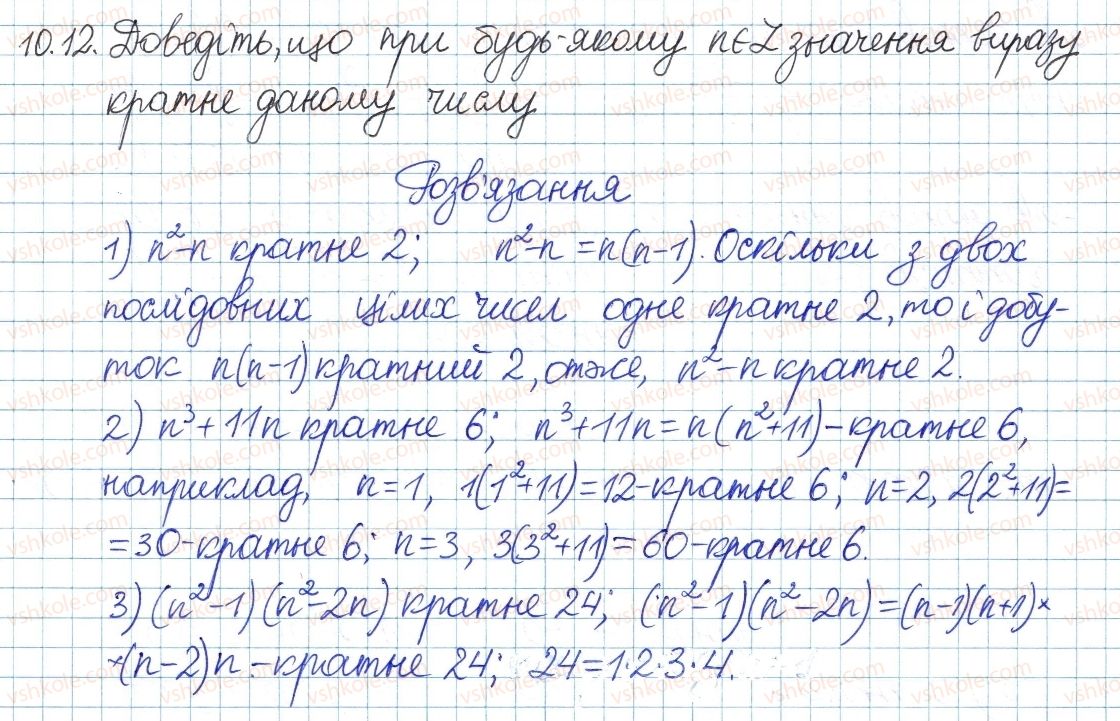 10.12. Доведіть, що при будь-якому n∈Z значення виразу
кратне даному числу
Розв'язання
1) n²-n кратне 2; n²-n = n(n-1). Оскільки з двох
послідовних цілих чисел одне кратне 2, то і добу-
ток n(n-1) кратний 2, отже, n²-n кратне 2.
2) n³+11n кратне 6; n³+11n = n(n²+11) - кратне 6,
наприклад, n=1, 1(1²+11)=12-кратне 6; n=2, 2(2²+11)=
=30-кратне 6; n=3, 3(3²+11)=60-кратне 6.
3) (n²-1)(n²-2n) кратне 24; (n²-1)(n²-2n)=(n-1)(n+1)×
×(n-2)n - кратне 24; 24=1·2·3·4.